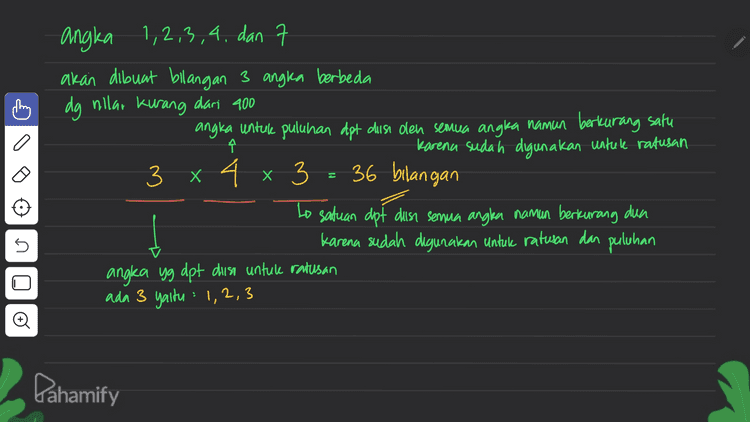 angka 1,2,3,4. dan 7
akan dibuat bilangan 3 angka berbeda
dg nilai kurang dari 400
angka untuk puluhan dpt diisi oleh semua angka namun berkurang satu
karena sudah digunakan untuk ratusan
3 x 4 x 3 = 36 bilangan
satuan dpt diisi semua angka namun berkurang dua
karena sudah digunakan untuk ratusan dan puluhan
angka yg dpt diisi untuk ratusan
ada 3 yaitu : 1,2,3
Pahamify